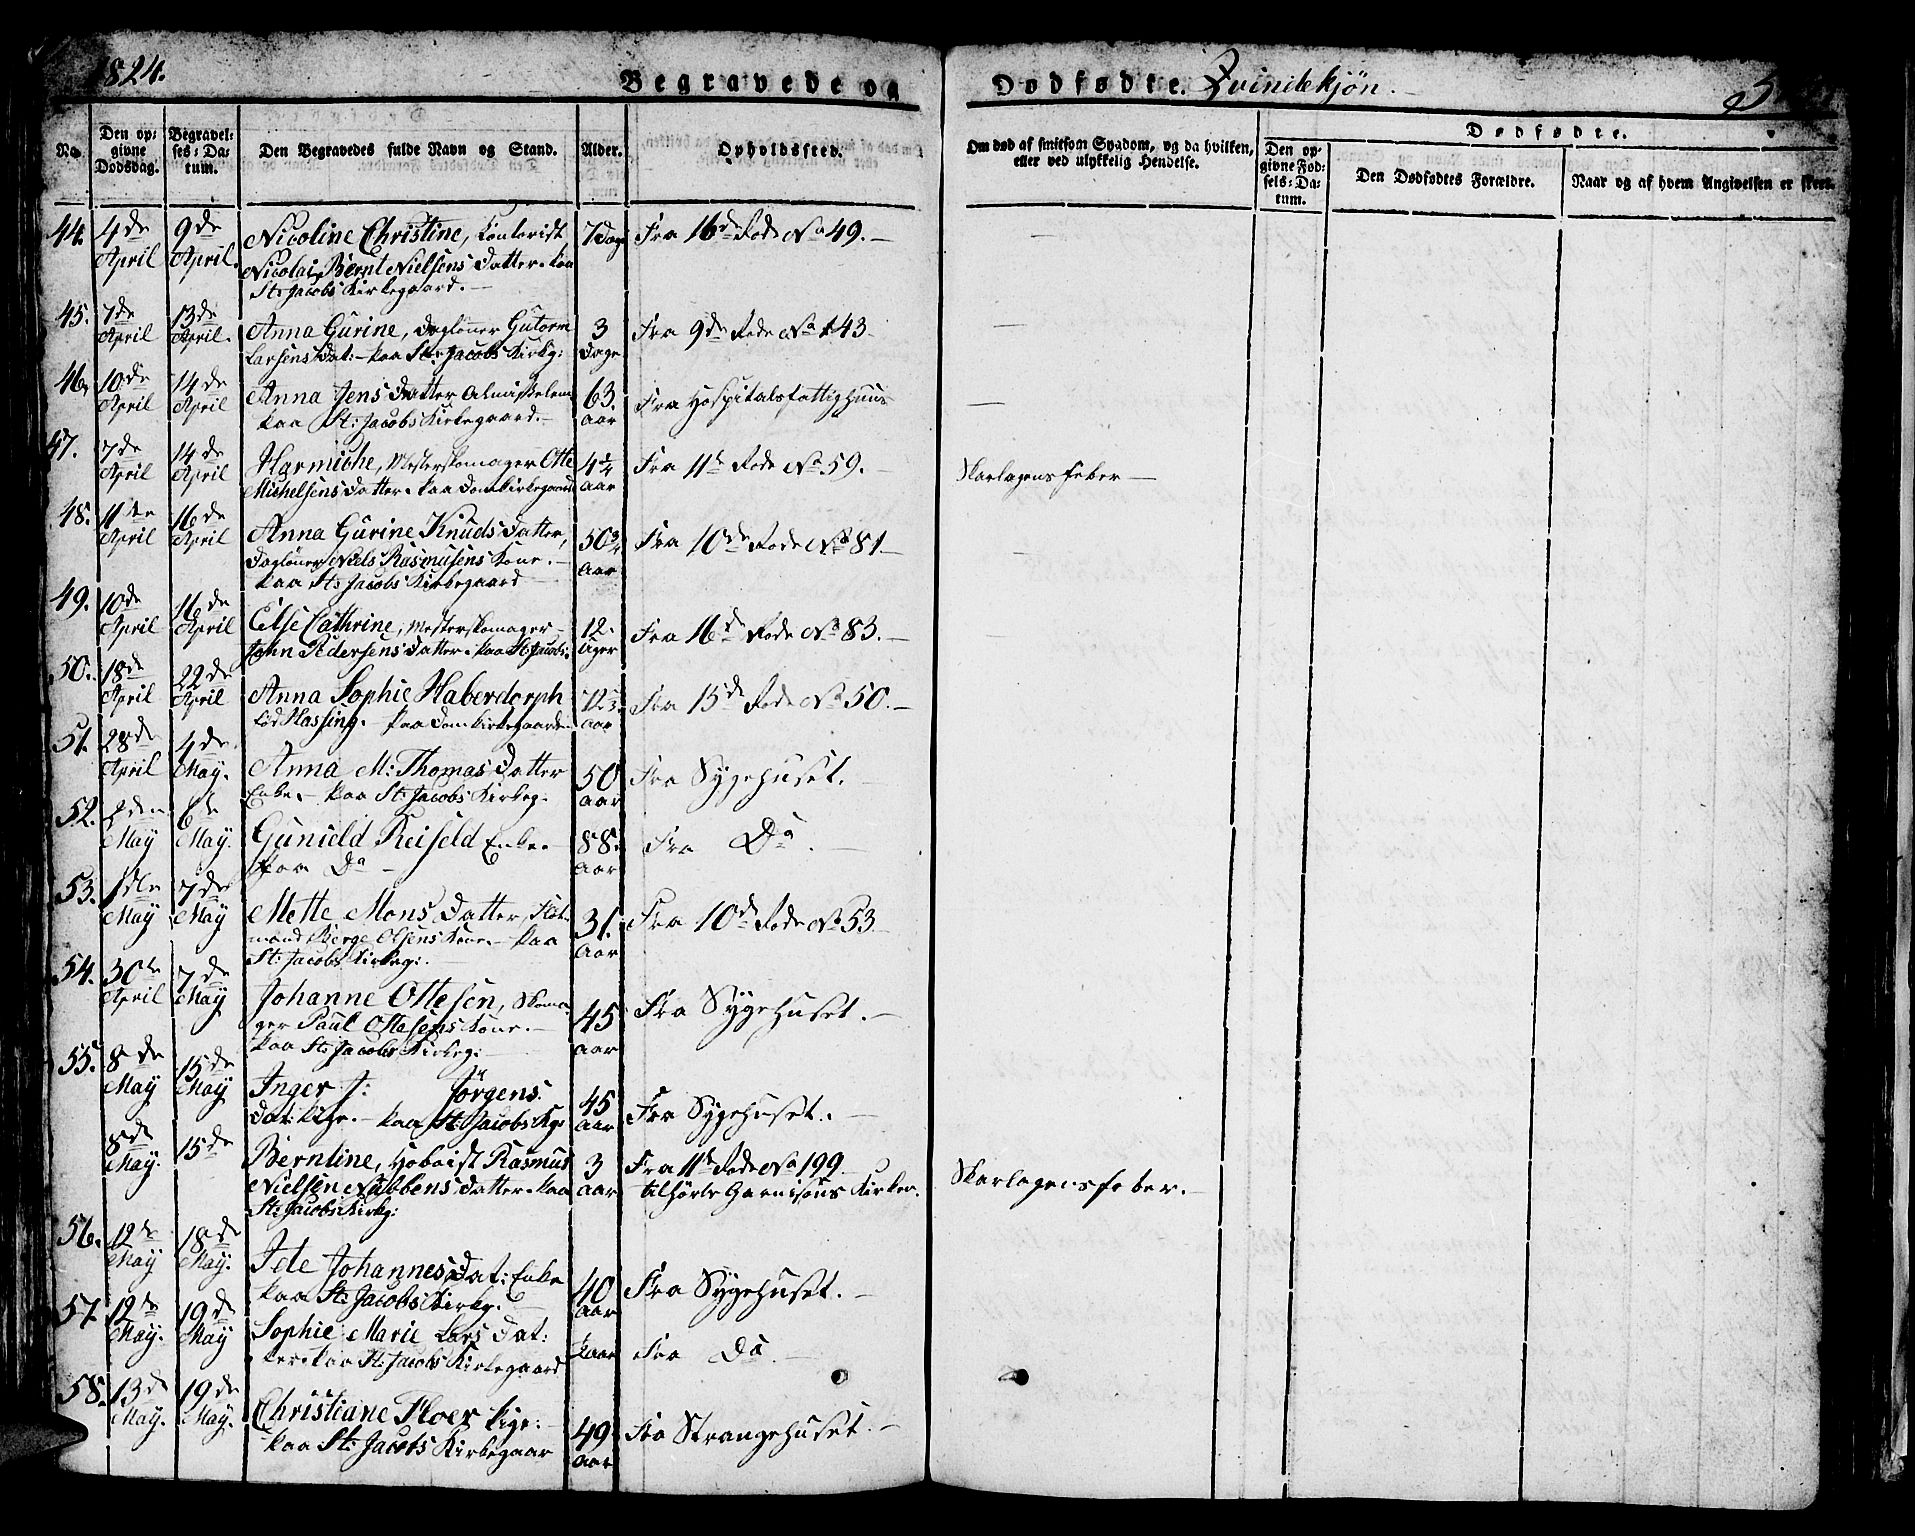 1824.
Begravede og Dødfødte. Qvindekjøn.
No.
Den opgivne Dødsdag.
Begravelses-Datum.
Den Begravedes fulde Navn og Stand.
Alder.
Opholdssted.
Om død af smitsom Sygdom, og da hvilken, eller ved ulykkelig Hendelse.
Dødfødte.
Den opgivne Fødsels-Datum.
Den Dødfødtes Forældre.
Naar og af hvem Angivelsen er skeet.
44. 4de 9de Nicoline Christine, Contorist 7 Dage Fra 16de Rode No 49. —
April April. Nicolai Bernt Nielsens Datter. paa
St: Jacobs Kirkegaard. —
45. 7de 13de Anna Gurine, Dagløner Gutorm 3 Fra 9de Rode No 143 —
April April. Larsens Dat: — paa St: Jacobs Kirkg: Dage
46. 10de 14de Anna Jens Datter Almisselem 63. Fra Hospitalsfattighuus
April April paa St: Jacobs Kirkegaard. — aar
47. 7de 14de Harmiche, Mesterskomager Otte 4¼ Fra 11te Rode No 59. — Skarlagensfeber —
April April Michelsens Datter. paa Domkirkegaard aar
48. 11te 16de Anna Gurine Knuds Datter, 50¾ Fra 10de Rode No 81 —
April April Dagløner Niels Rasmusens Kone. — aar
paa St: Jacobs Kirkegaard —
49. 10de 16de Else Cathrine, Mesterskomager 12. Fra 16de Rode No 83. —
April April John Pedersens Datter. paa St: Jacobs. Uger
50. 18de 22de Anna Sophie Haberdorph Fra 15de Rode No 50. —
April April Hassing. paa Domkirkegaarde aar
51. 28de 4de Anna M: Thomas Datter 50 Fra Sygehuset. —
April May. Enke. — paa St: Jacobs Kirkeg. aar
52. 2den 6te Gunield Reiseld Enke. 88. Fra Do. —
May May. paa Do — aar
53. 1ste 7de Mette Mons Datter, 31. Fra 10de Rode No 53 —
May May mand Børge Olsens Kone. — paa aar
St: Jacobs Kirkeg: —
54. 30te 7de Johanne Ottesen, Skoma- 45 Fra Sygehuset. —
April May ger Paul Ottesens Kone. —
paa St: Jacobs Kirkeg: — aar
55. 8de 15de Inger J: Jørgens 45 Fra Sygehuset. —
May May Dat: Pige. — paa St: Jacobs Kg: aar
8de 15de Berntine, Hoboist Rasmus 3 Fra 11te Rode No 199 — Skarlagensfeber. —
May. Nielsen Nubbens Datter. paa aar tilhørte Garnisons Kirken.
St: Jacobs Kirkg:
56. 12te 18de Ide Johannes Dat: Enke 40 Fra Sygehuset. —
May May. paa St: Jacobs Kirkg. — aar
57. 12te 19de Sophie Marie Lars Dat: Fra Do —
May. May ter. paa St: Jacobs Kirkegaard aar
58. 13de 19de Christiane Floer Pige. 49 Fra Strangehuset. —
May. May. paa St: Jacobs Kirkegaar aar